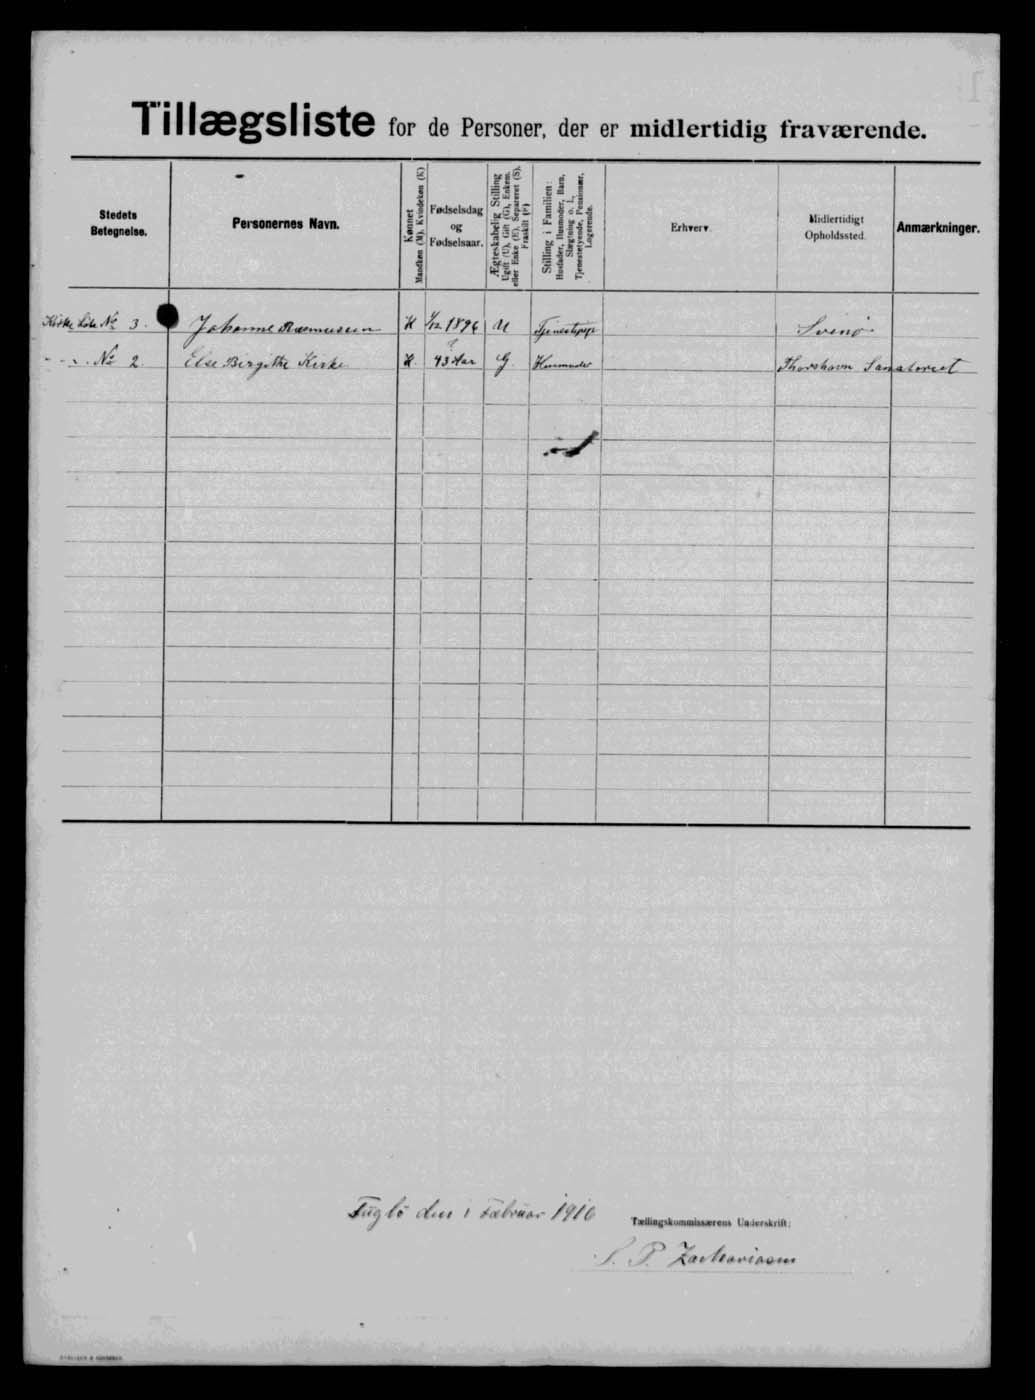 Tillægsliste for de Personer, der er midlertidig fraværende.
Stedets Betegnelse.
Personernes Navn.
Kønnet
Mandkøn (M). Kvindekøn (K)
Fødselsdag og Fødselsaar.
Ægteskabelig Stilling
Ugift (U), Gift (G), Enkem. eller Enke (E), Separeret (S), Fraskilt (F)
Stilling i Familien:
Husfader, Husmoder, Barn, Slægtning o. l., Tjenestetyende, Pensionær, Logerende.
Erhverv.
Midlertidigt Opholdssted.
Anmærkninger.
Kirke Liste No 3. Johanne Rasmussen K 1/12 1896 U Tjenestepige Svinø
- - No 2. Else Birgitte Kirke K. ? 43 Aar G. Husmoder Thorshavn Sanatoriet
Fuglö den 1 Februar 1916
Tællingskommissærens Underskrift:
S. P. Zachariasen